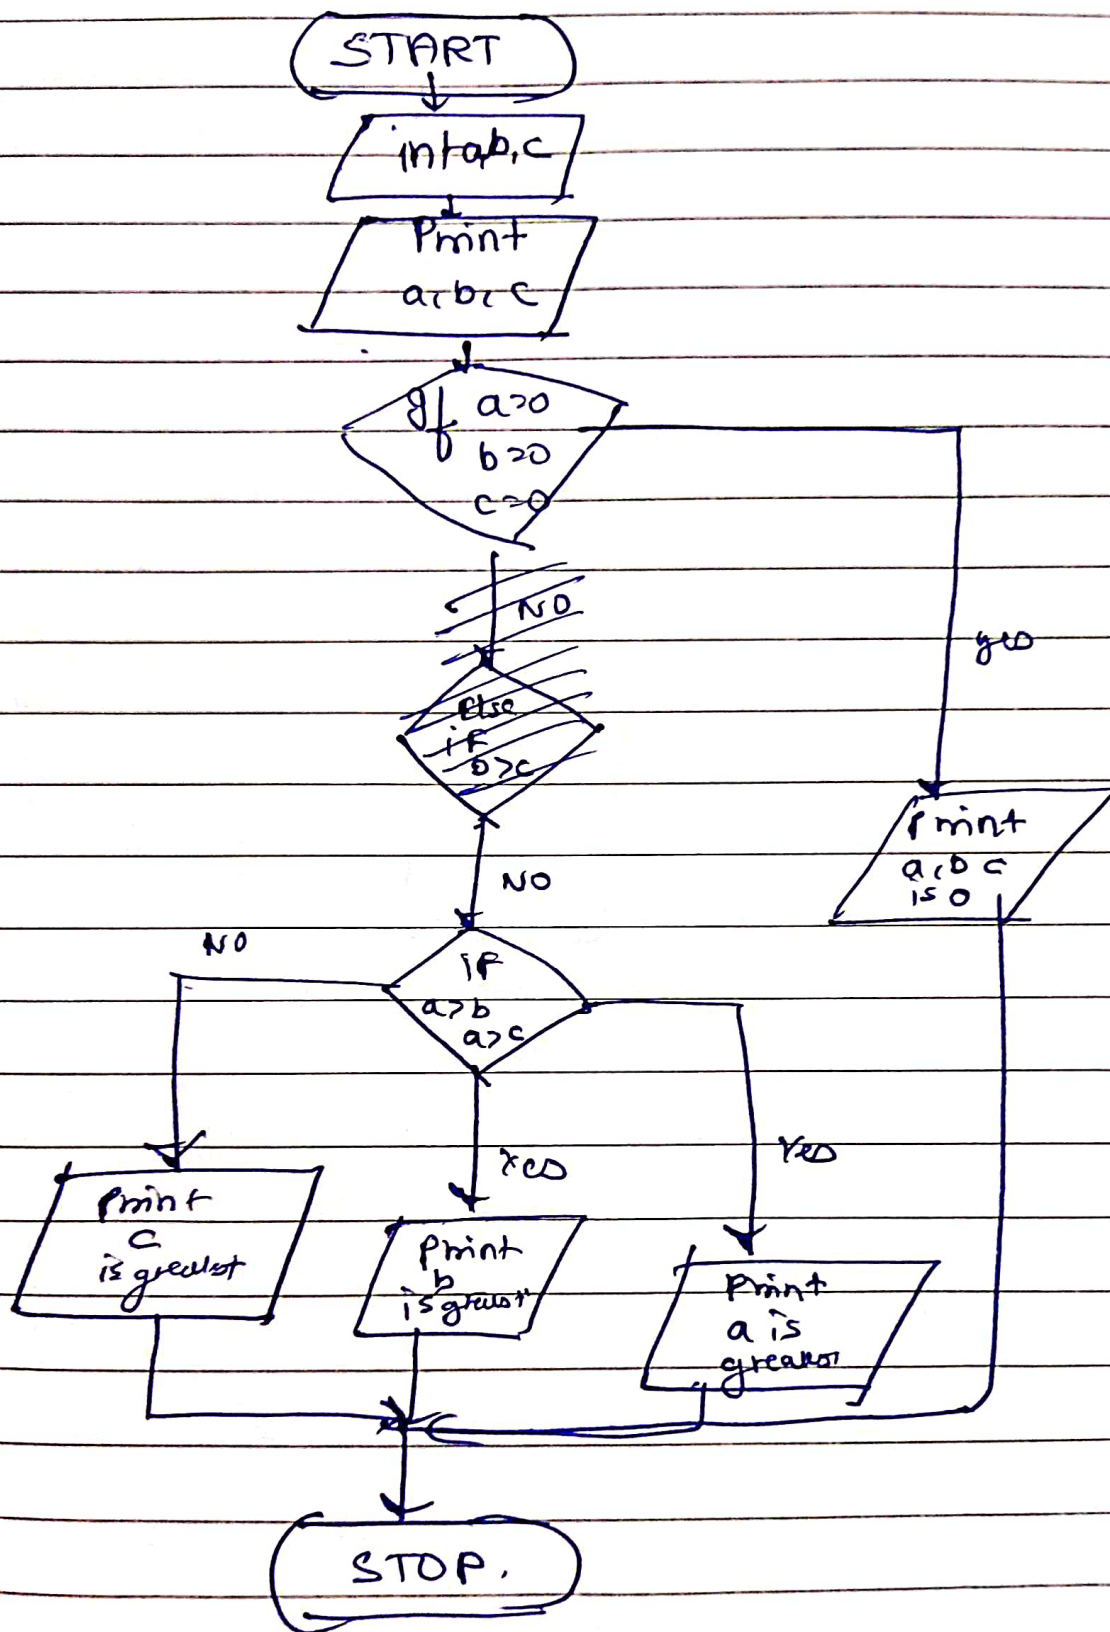 START
int a,b,c
Print
a, b, c
If a>0
b>0
c>0
NO
yes
Else
if
b>c
Print
a, b c
is 0
NO
NO
if
a>b
a>c
Yes
Yes
Print
c
is greatest
Print
b
is greatest
Print
a is
greatest
STOP.